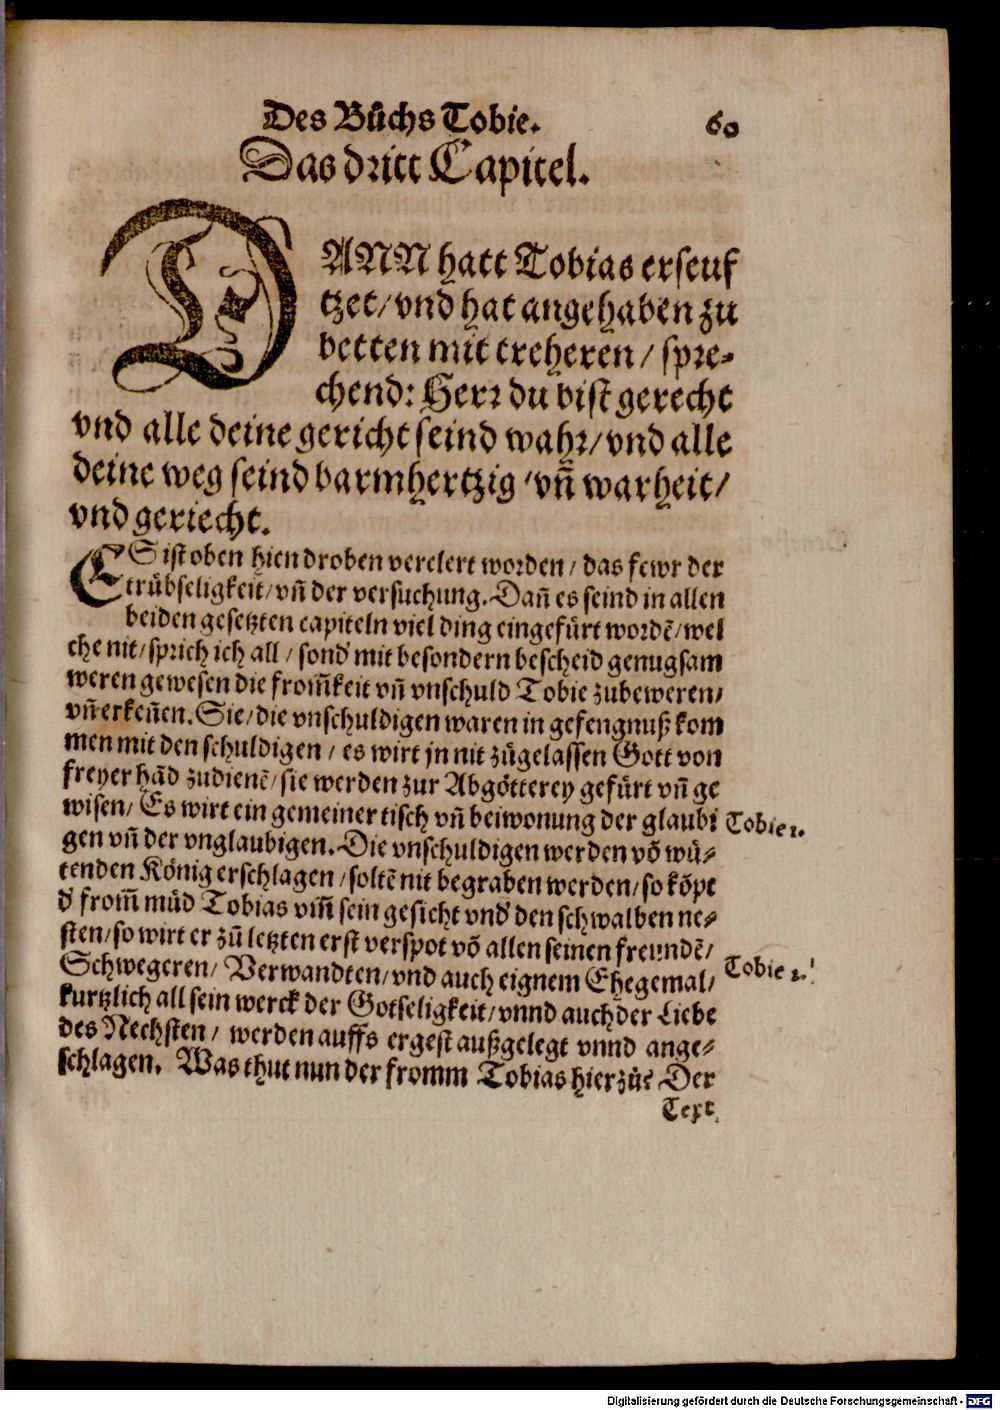 Des Bůchs Tobie. 60
Das dritt Capitel.
DANN hatt Tobias erseuf
tzet/ vnd hat angehaben zu
betten mit treheren / spre-
chend: Herr du bist gerecht
vnd alle deine gericht seind wahr/ vnd alle
deine weg seind barmhertzig / vñ warheit/
vnd geriecht.
ES ist oben hien droben verelert worden / das fewr der
trübseligkeit/ vñ der versuchung. Dañ es seind in allen
beiden gesetzten capiteln viel ding eingefürt wordẽ/ wel
che nit/ sprich ich all / sond' mit besondern bescheid genugsam
weren gewesen die from̃keit vñ vnschuld Tobie zubeweren/
vñ erkeñen. Sie/ die vnschuldigen waren in gefengnuß kom
men mit den schuldigen / es wirt jn nit zůgelassen Gott von
freyer hãd zudienẽ/ sie werden zur Abgötterey gefürt vñ ge
wisen/ Es wirt ein gemeiner tisch vñ beiwonung der glaubi
Tobie 1.
gen vñ der vnglaubigen. Die vnschuldigen werden võ wü-
tenden König erschlagen / soltẽ nit begraben werden/ so kõpt
d' from̃ müd Tobias vm̃ sein gesicht vnd' den schwalben ne-
sten/ so wirt er zů letzten erst verspot võ allen seinen freundẽ/
Schwegeren/ Verwandten/ vnd auch eignem Ehegemal/
Tobie 2.
kurtzlich all sein werck der Gotseligkeit/ vnnd auch der Liebe
des Nechsten / werden auffs ergest außgelegt vnnd ange-
schlagen. Was thut nun der fromm Tobias hierzů? Der
Text
Digitalisierung gefördert durch die Deutsche Forschungsgemeinschaft - DFG